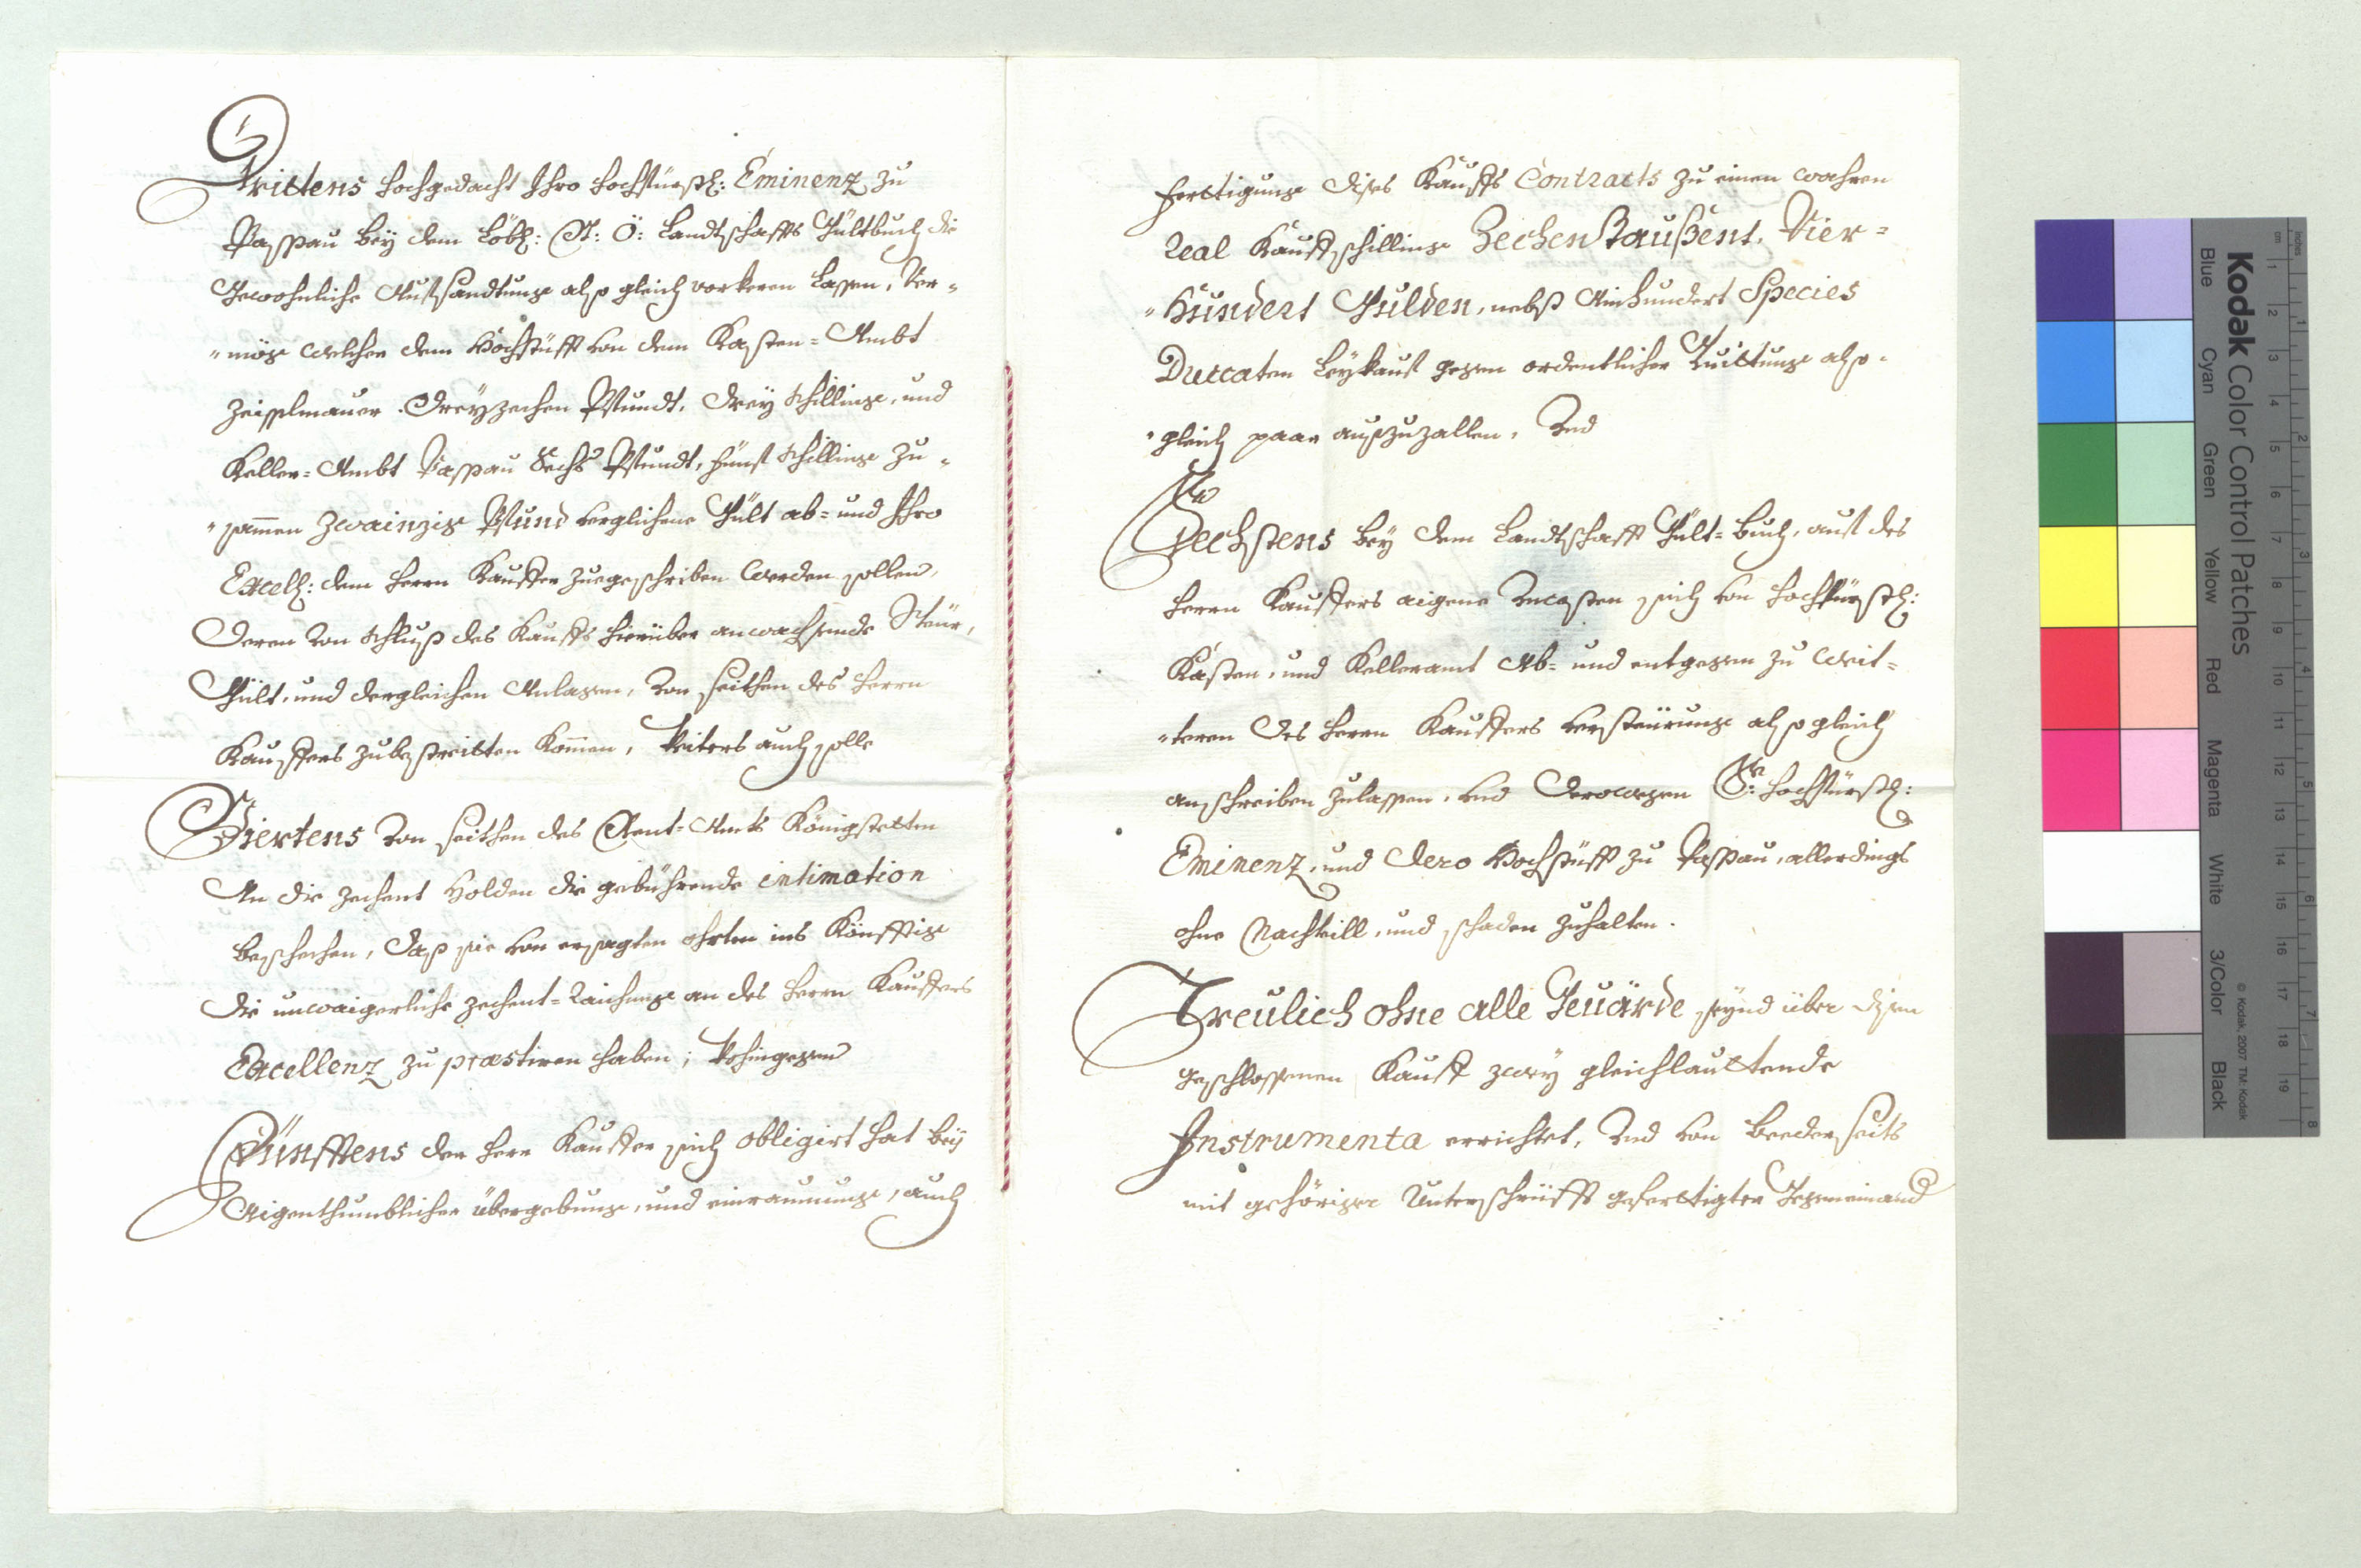 Drittens hochgedacht Ihro hochfürstl: Eminenz zu
Passau bey dem Löbl: N: Ö: Landtschaffts Gültbuch die
Gewohnliche Aufsandtung alsogleich vorkeren lassen, Ver-
"mög welcher dem Hochstüfft von dem Kasten=Ambt
Zeisselmauer dreyzechen Pfundt, drey Schilling, und
Keller=Ambt Passau Sechs Pfundt, fünf Schilling zu-
"sammen Zwainzig Pfund verglichene Gült ab= und Ihro
Excell: dem herrn Kauffer zuegeschriben werden sollen,
deren von Schluß des Kauffs hierüber anwachsende Steür,
Gült, und dergleichen Anlagen, von seithen des herrn
Kauffers zubestreitten kommen, Weiters auch solle
Viertens von seithen des Rent=Amts Königstetten
An die Zechent Holden die gebührende intimation
beschechen, daß sie von ersagten ohrten ins Könfftig
die unwaigerliche Zechent=Raichung an des herrn Kauffers
Excellenz zu præstiren haben; Wohingegen
Fünfftens der herr Kauffer sich obligirt hat bey
Aigenthumblicher übergebung, und einraumung, auch
Förttigung dises Kauffs Contracts zu einen wahren
Real Kauffschilling Zechen Taußent, Vier=
"Hundert Gulden, nebst Ainhundert Species
Duccaten Leykauf gegen ordentlicher Quittung also-
"gleich paar auszuzallen, Und
Sechstens bey dem Landtschafft Gült=buch, auf des
herrn Kauffers aigene Uncosten sich von hochfürstl:
Kasten, und Kelleramt Ab= und entgegen zu Weit=
"teren des herrn Kauffers versteürung alsogleich
anschreiben zulassen, und derowegen Sr: hochfürstl:
Eminenz, und dero Hochstüfft zu Passau, allerdings
ohne Nachteill, und schaden zuhalten.
Treulich ohne alle Geuärde seynd über disen
geschlossenen Kauff zwey gleichlauttende
Instrumenta errichtet, Und von beederseits
mit gehöriger Unterschrüfft gefertigter Gegeneinand
Kodak Color Control Patches
Blue Cyan Green Yellow Red Magenta White 3/Color Black
© Kodak, 2007 TM: Kodak